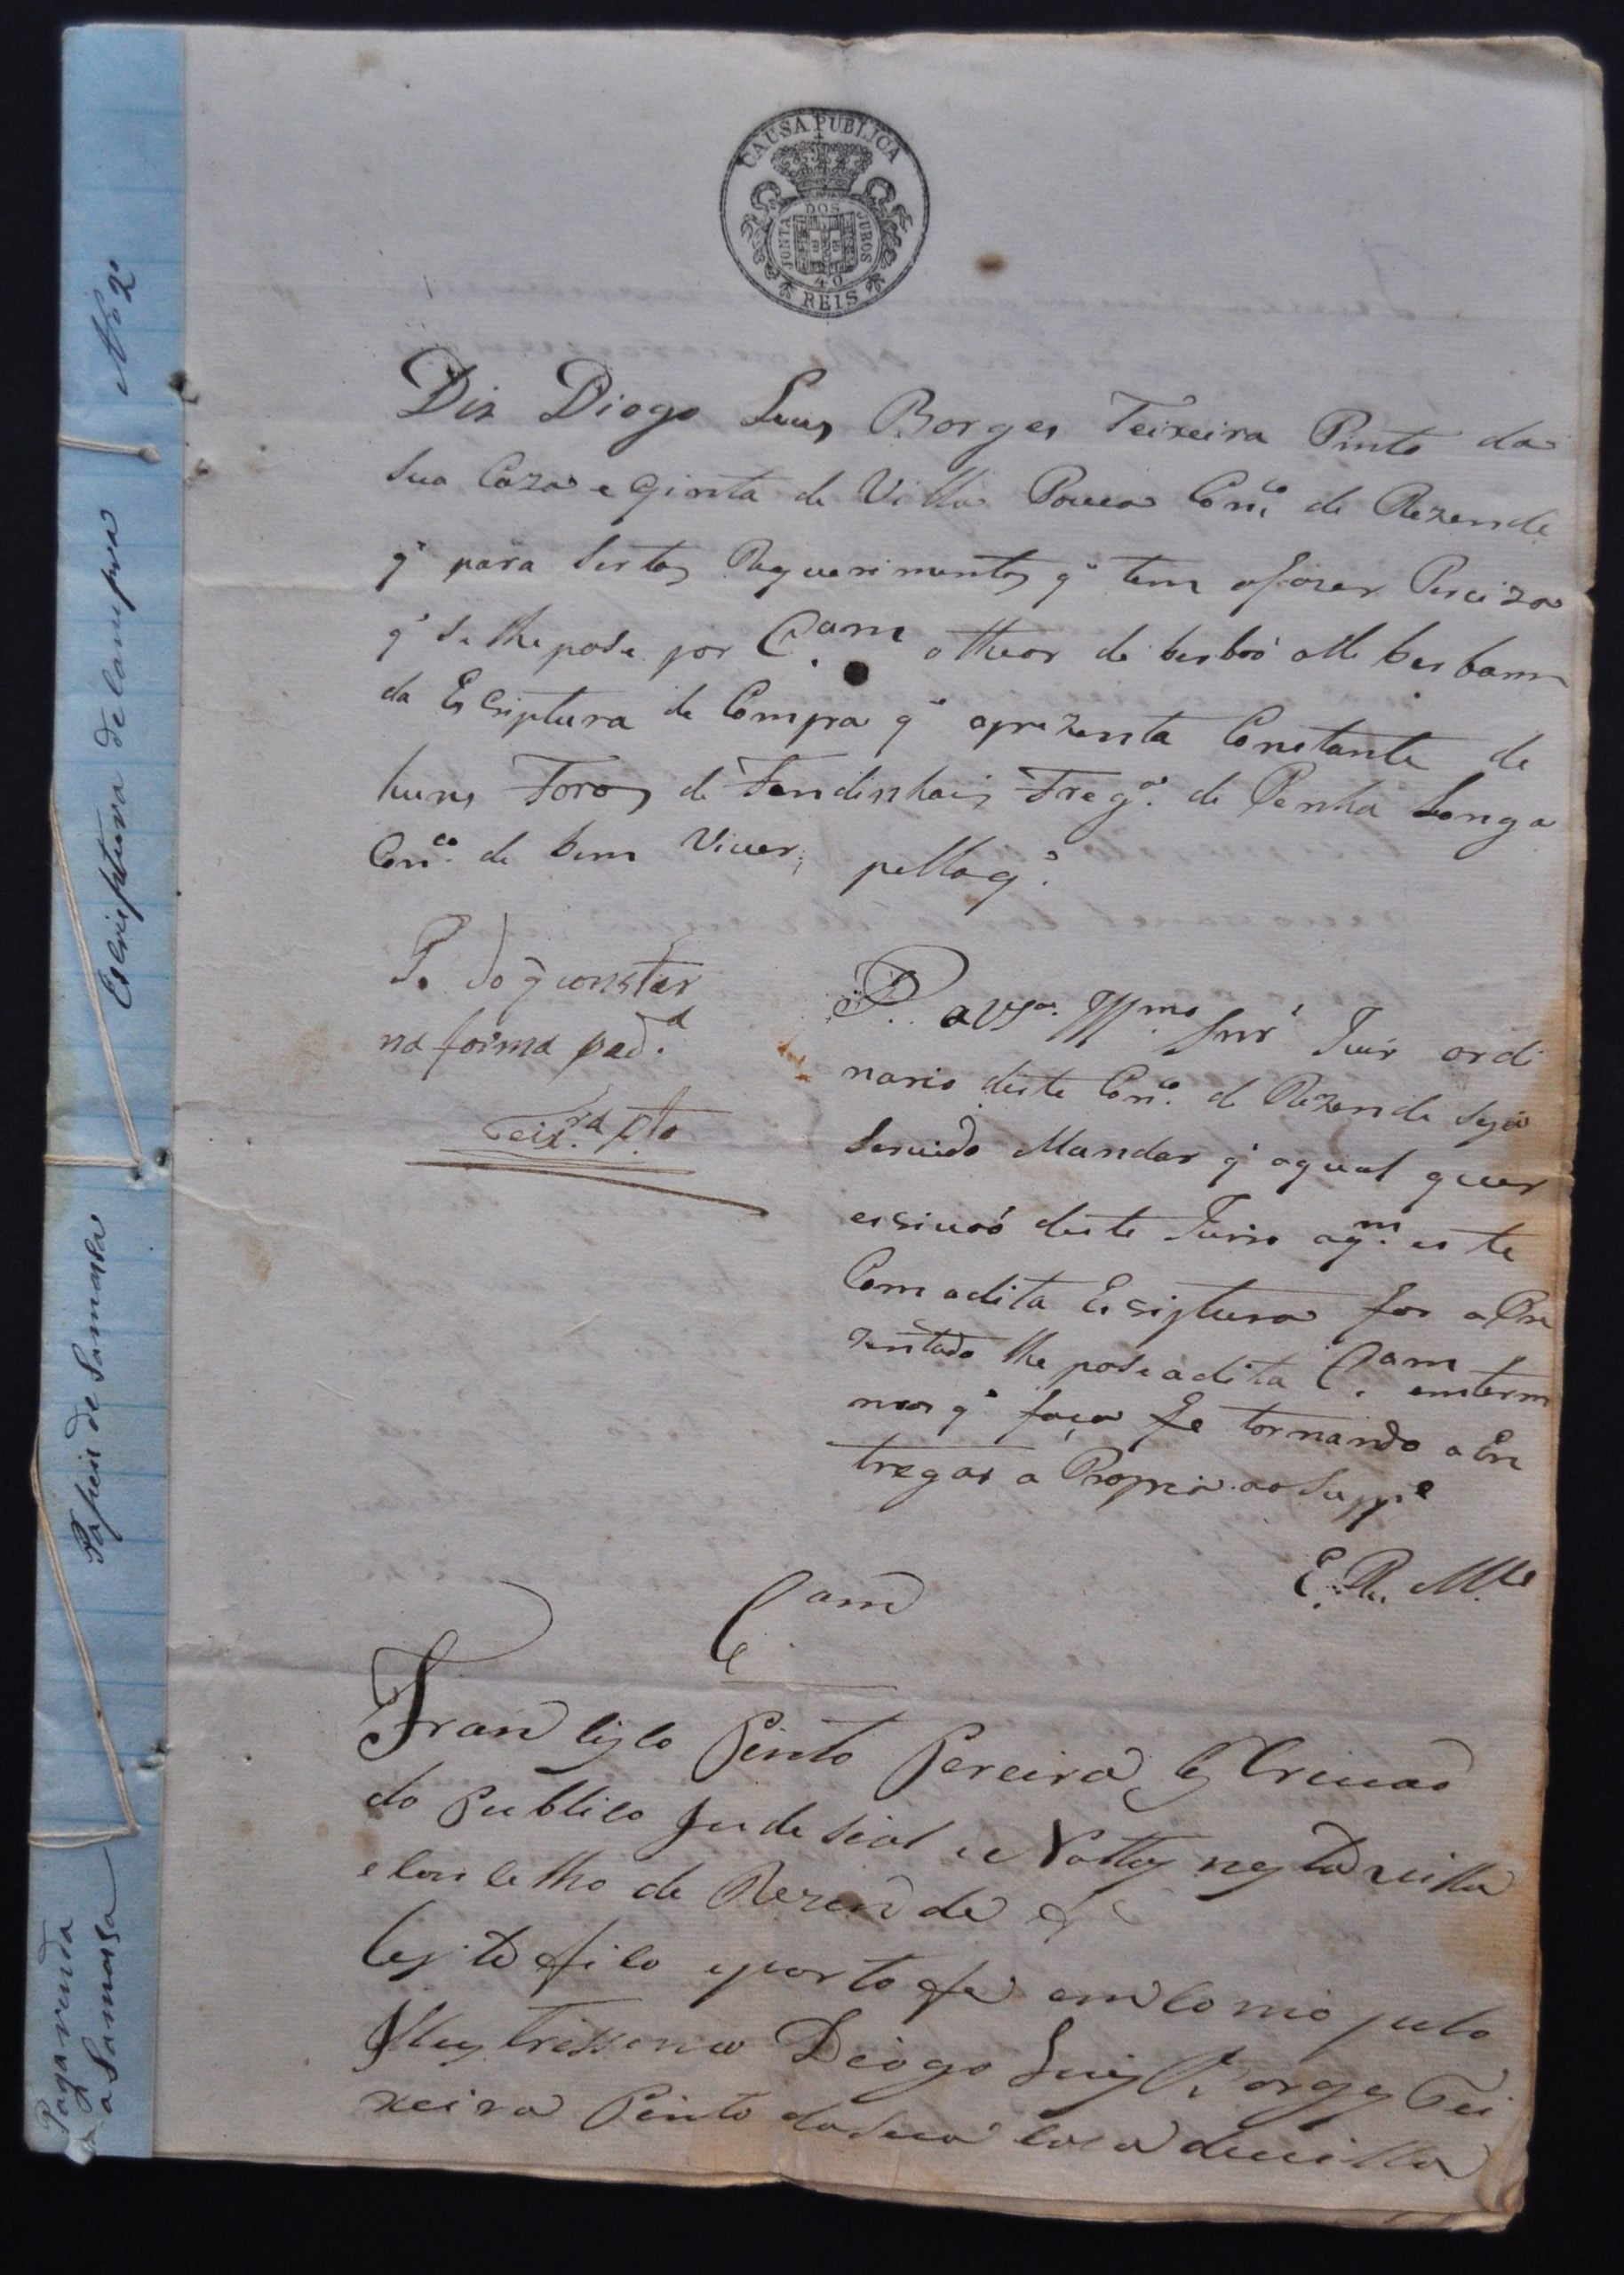 CAUSA PUBLICA
JUNTA DOS JUROS
40
REIS
Diz Diogo Luis Borges Teixeira Pinto da
sua Caza e Qinta de Villa Pouca Con.co de Rezende
q' para sertos Requerimentos q' tem afazer Perciza
q' se lhe pase por C.am o theor de berbó a berbam
da Escriptura de Compra q' aprezenta Constante de
huns Foros de Fandinhais Freg.a de Penha Longa
Con.co de bem Viver, pello q'
P. do q constar
na forma ped.a
Teix.ra P.to
P. a VSª. Ill.mo Snr' Juis ordi
nario deste Con.co de Rezende seja
servido Mandar q' aqual quer
escrivaó deste Juizo aq.m este
Com adita Escriptura for aPre
zentado lhe pase adita C.am em term
nos q' faça fe tornando a En
tregar a Propria ao Supp.e
E. R. M.ce
C.am
Francisco Pinto Pereira Escrivaõ
do Publico Judesial e Nottas nesta villa
e Concelho de Rezende &
Certefico e porto fe em como pelo
Illustrissemo Diogo Luis Borges Tei
xeira Pinto da sua Caza de villa
No 2º
Escriptura de compra
Papeis de Samarsa
Paga renda
a Samarsa